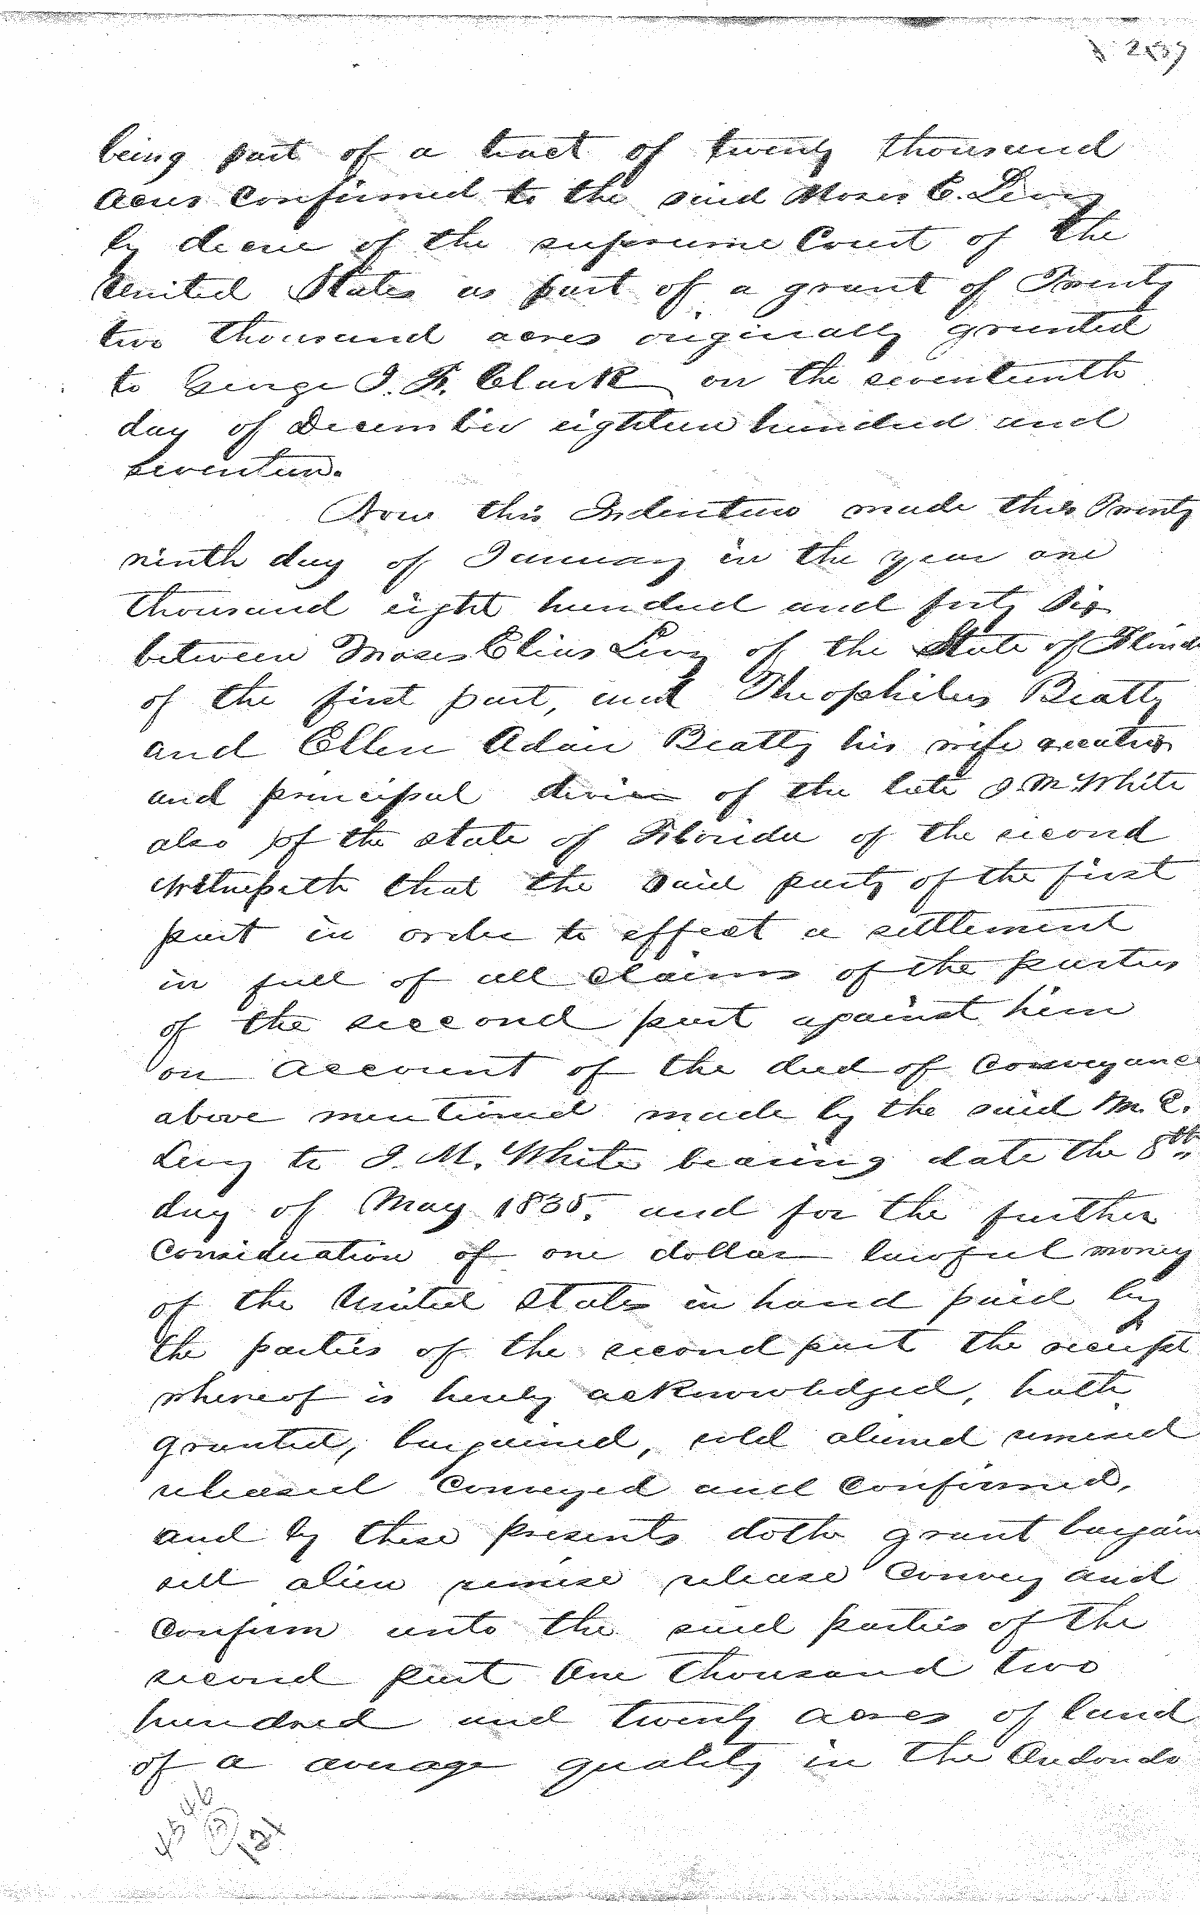 being part of a tract of twenty thousand
acres confirmed to the said Moses E. Levy
by decree of the supreme Court of the
United States as part of a grant of Twenty
two thousand acres originally granted
to George I. F. Clark on the seventeenth
day of December eighteen hundred and
seventeen.
Now this Indenture made this Twenty
ninth day of January in the year one
thousand eight hundred and forty Six
between Moses Elias Levy of the State of Florida
of the first part, and Theophilus Beatty
and Ellen Adair Beatty his wife
and principal of the late J. M. White
also of the state of Florida of the second
Witnesseth that the said party of the first
part in order to effect a settlement
in full of all claims of the parties
of the second part against him
on account of the deed of conveyance
above mentioned made by the said M. E.
Levy to J. M. White bearing date the 8th
day of May 1835, and for the further
Consideration of one dollar lawful money
of the United States in hand paid by
the parties of the second part the receipt
whereof is hereby acknowledged, hath
granted, bargained, sold aliened remised
released conveyed and confirmed,
and by these presents doth grant bargain
sell alien remise release Convey and
Confirm unto the said parties of the
second part One thousand two
hundred and twenty acres of land
of a average quality in the
4546
(13)
121